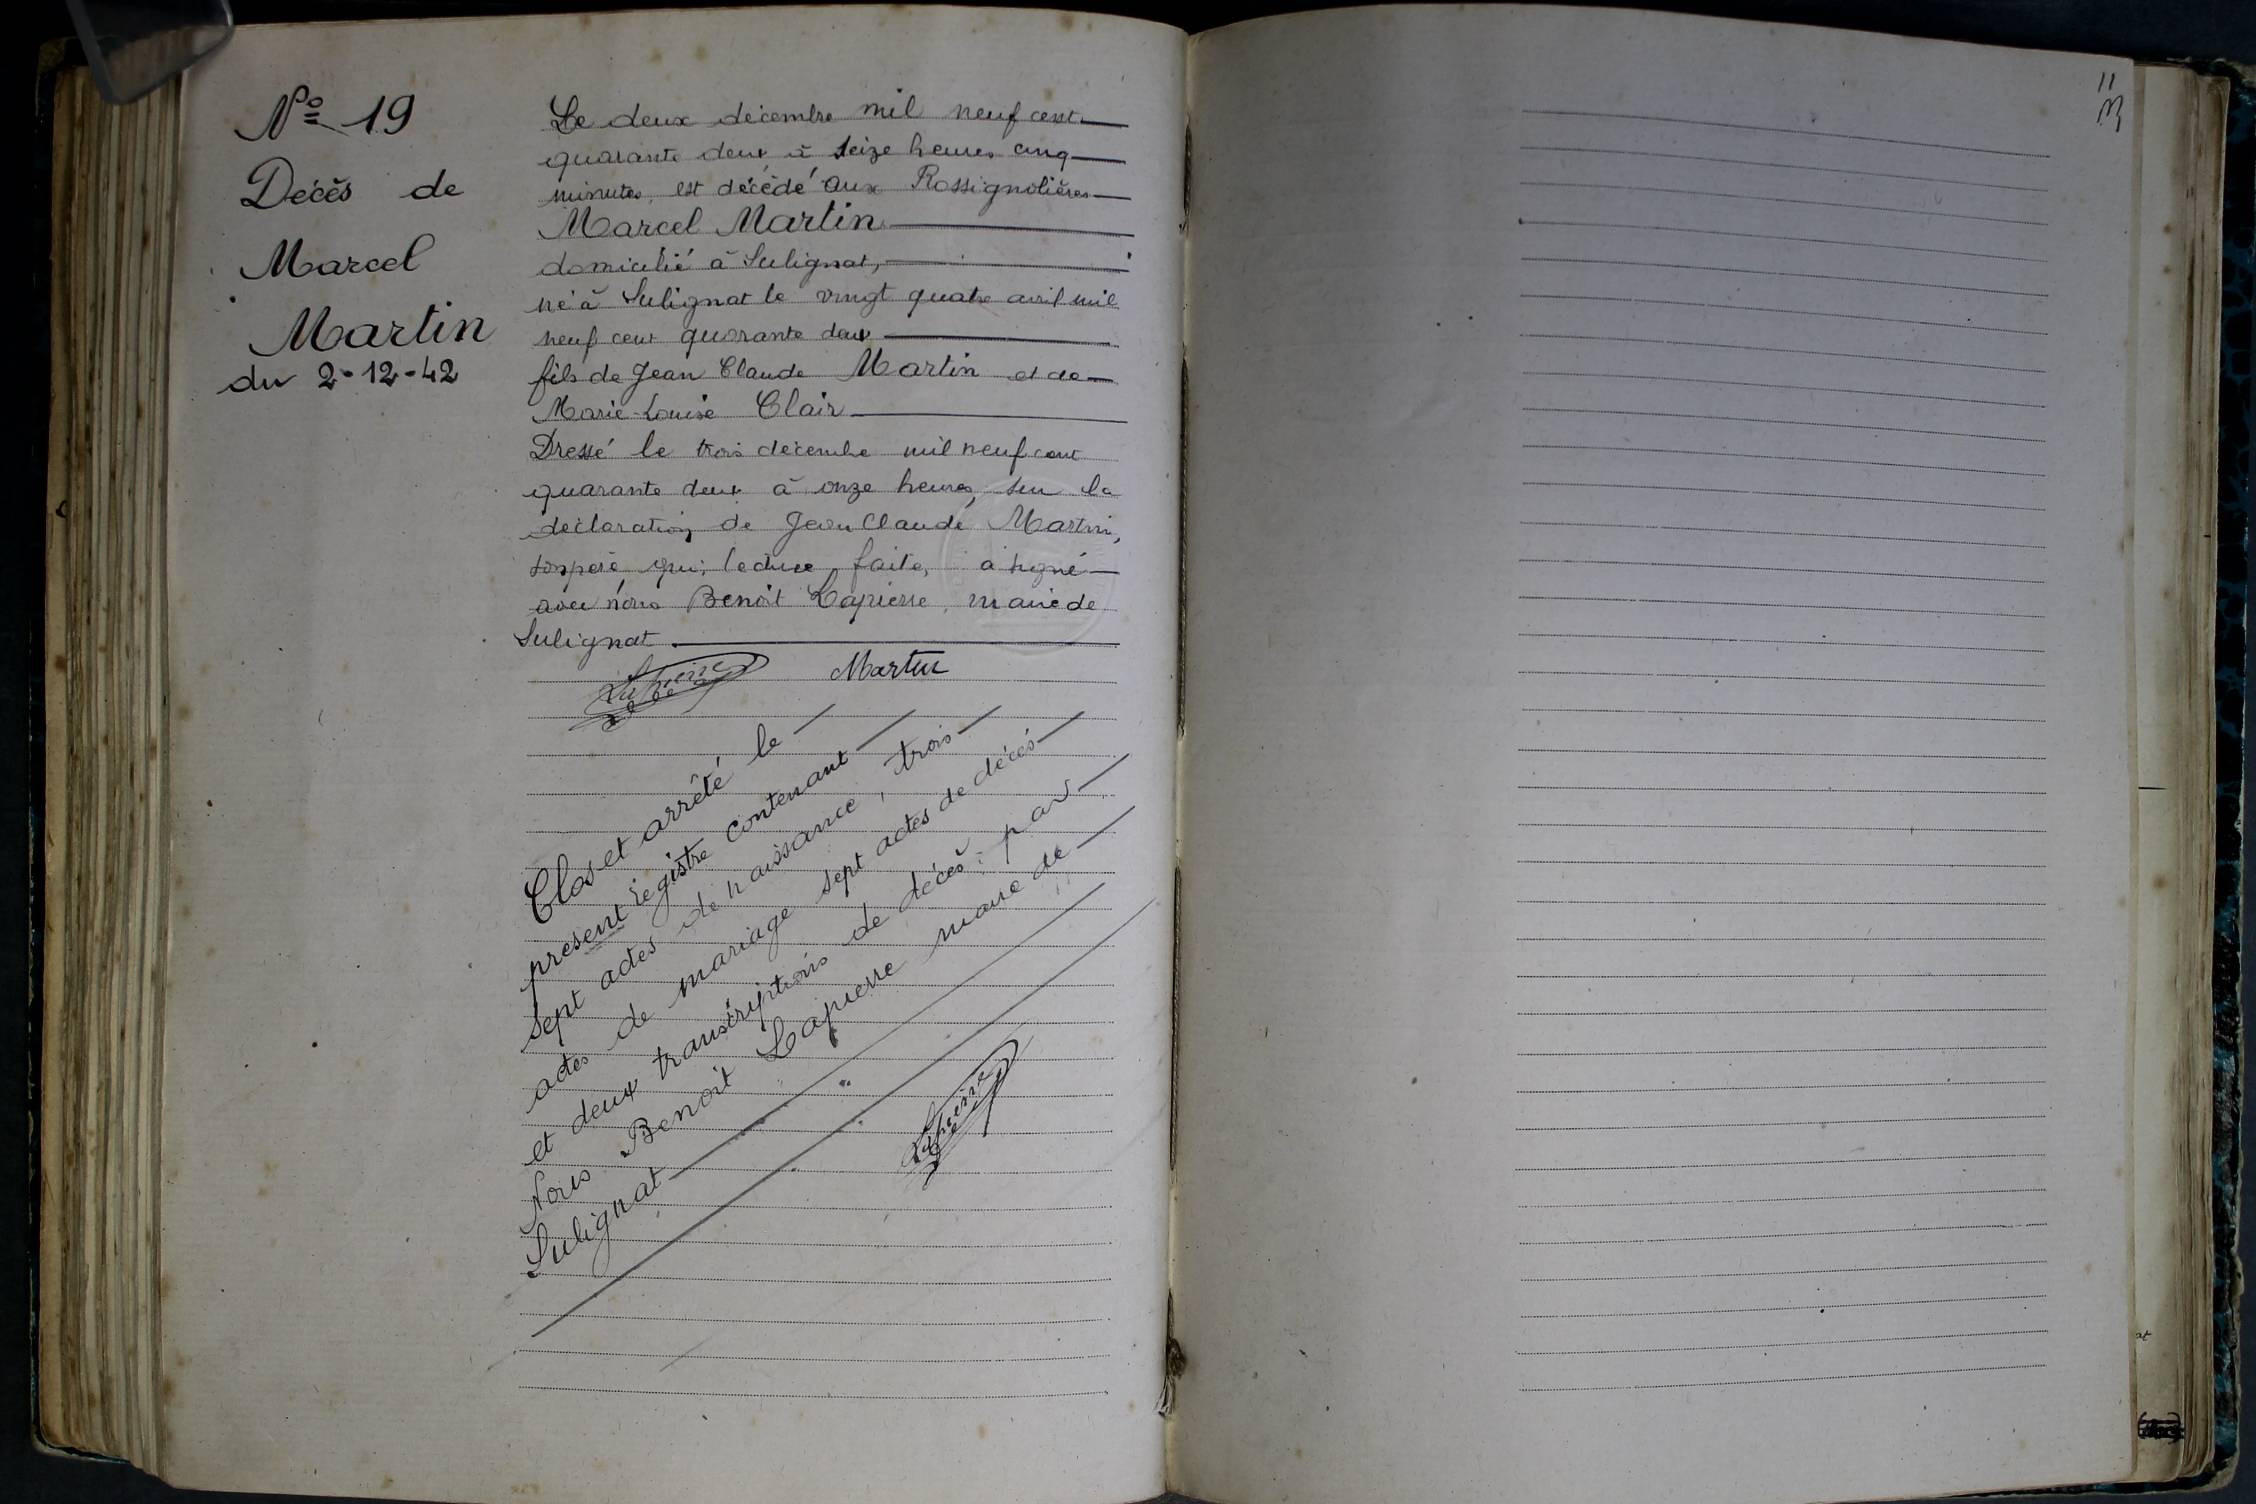 Nº 19
Décès de
Marcel
Martin
du 2-12-42
Le deux décembre mil neuf cent
quarante deux à seize heures cinq
minutes, est décédé aux Rossignolières
Marcel Martin
domicilié à Sulignat,
né à Sulignat le vingt quatre avril mil
neuf cent quarante deux
fils de Jean Claude Martin et de
Marie-Louise Clair
Dressé le trois décembre mil neuf cent
quarante deux à onze heures, sur la
déclaration de Jean Claude Martin,
son père qui, lecture faite, a signé
avec nous Benoît Lapierre, maire de
Sulignat.
Lapierre Martin
Clos et arrêté le
présent registre contenant
sept actes de naissance, trois
actes de mariage sept actes de décès
et deux transcriptions de décès; par
Nous Benoît Lapierre maire de
Sulignat
Lapierre
11